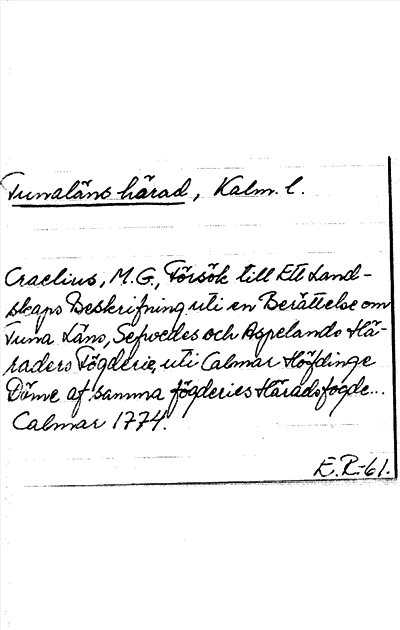 Tunaläns härad, Kalm. l.
Craelius, M.G., Försök till Ett Land-
skaps Beskrifning uti en Berättelse om
Tuna Läns, Sefvedes och Aspelands Hä-
raders Fögderie, uti Calmar Höfdinge
Döme af samma fögderies Häradsfogde...
Calmar 1774.
E.R.-61.